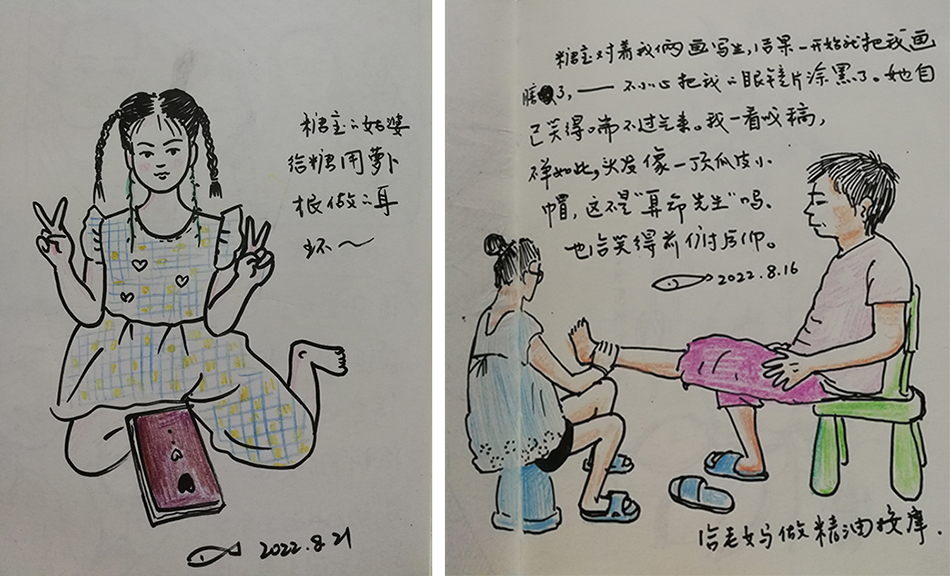 糖宝的姑婆
给糖用萝卜
根做的耳
环~
2022.8.21
糖宝对着我俩画写生,结果一开始就把我画
了,一不小心把我的眼镜片涂黑了。她自
己笑得喘不过气来。我一看哎稿,
不单如此,头发像一顶瓜皮小
帽,这不是"算命先生"吗。
也给笑得前仰后仰。
2022.8.16
给老妈做精油按摩.